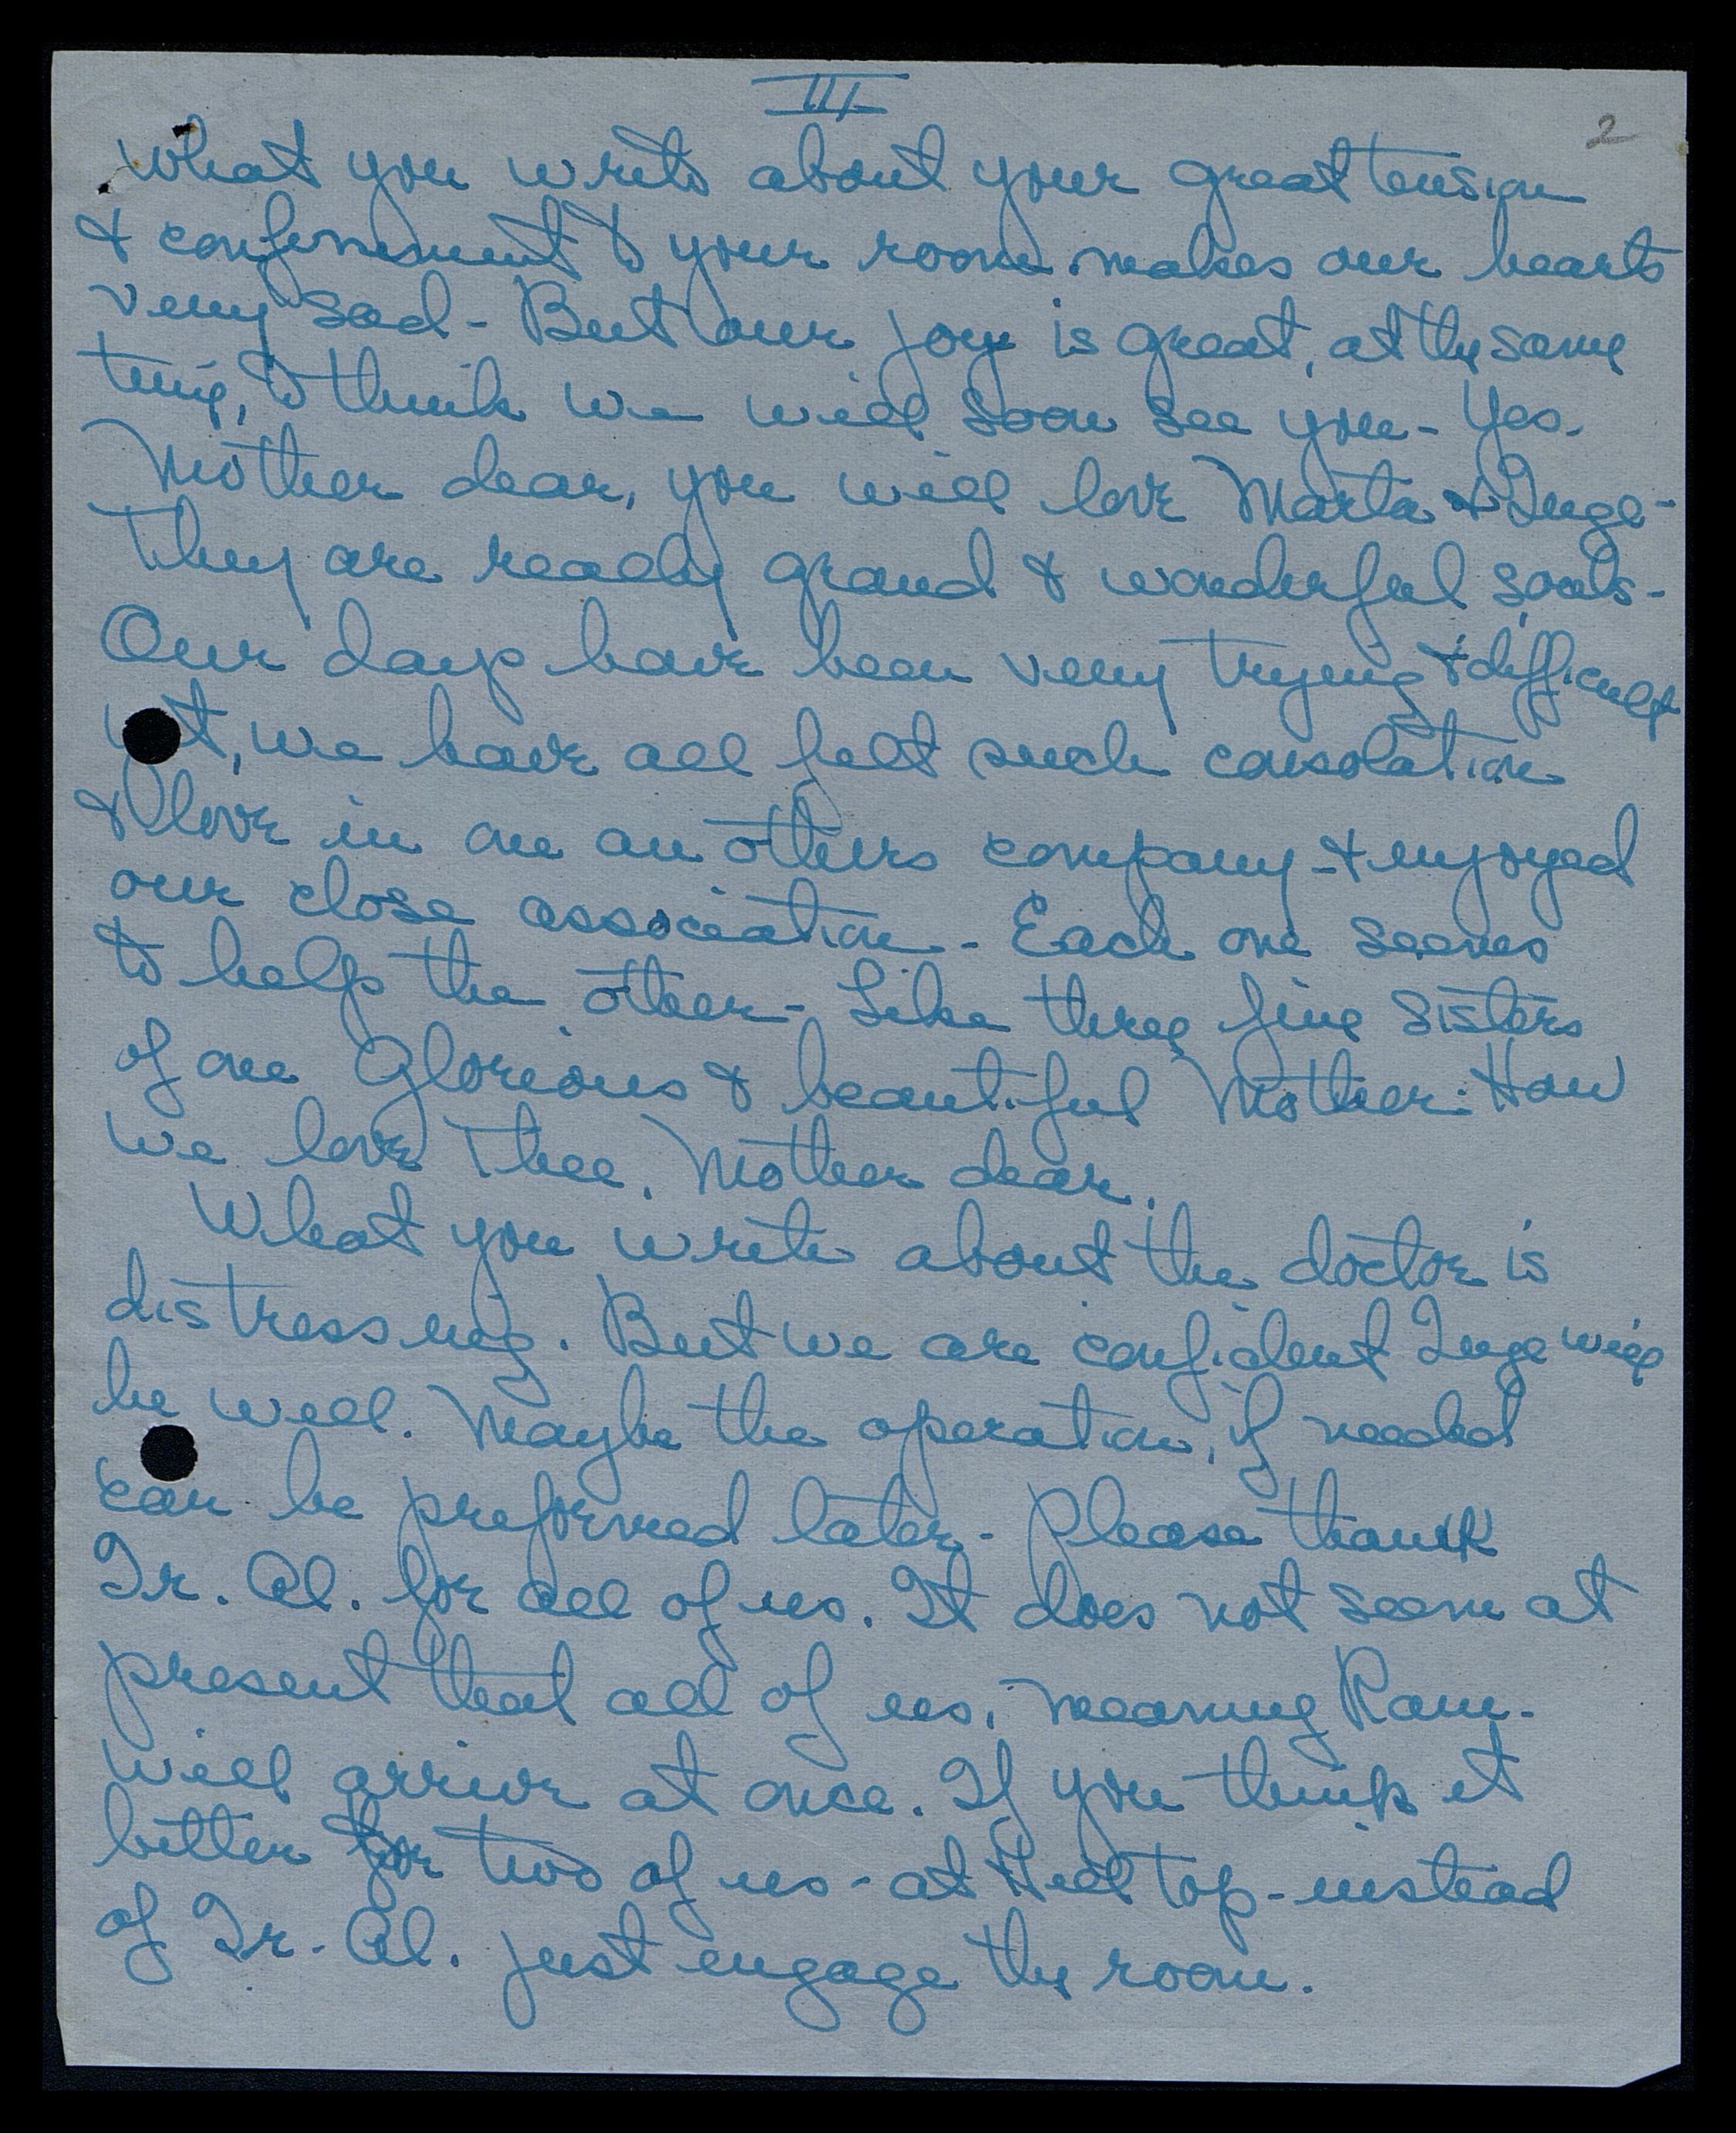 III
2
What you write about your great tension
& confinement to your room makes our hearts
very sad - But our joy is great, at the same
time, to think we will soon see you - Yes.
Mother dear, you will love Marta & Inge -
They are really grand & wonderful souls -
Our days have been very trying & difficult
yet, we have all felt such consolation
& love in one an others company - & enjoyed
our close association - Each one seems
to help the other - Like three fine sisters
of one Glorious & beautiful Mother. How
we love Thee, Mother dear.
What you write about the doctor is
distressing. But we are confident Inge will
be well. Maybe the operation, if needed
can be preformed later - Please thank
Tr. Al. for all of us. It does not seem at
present that all of us, meaning Ram -
will arrive at once. If you think it
better for two of us - at Hill top - instead
of Tr. Al. just engage the room.